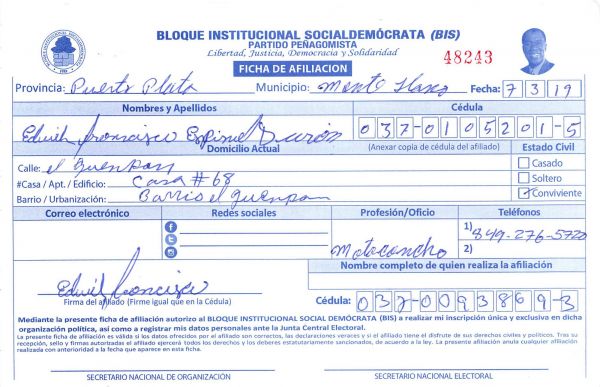 BLOQUE INSTITUCIONAL SOCIALDEMÓCRATA (BIS)
PARTIDO PEÑAGOMISTA
Libertad, Justicia, Democracia y Solidaridad
48243
FICHA DE AFILIACION
Provincia: Puerto Plata Municipio: Monte Llano Fecha: 7 3 19
Nombres y Apellidos Cédula
Edwih Francisco Espinel Duron 037-0105201-5
Domicilio Actual (Anexar copia de cédula del afiliado) Estado Civil
Calle: el Guenpan Casado
#Casa / Apt. / Edificio: Casa # 68 Soltero
Barrio / Urbanización: Barrio el guenpan Conviviente
Correo electrónico Redes sociales Profesión/Oficio Teléfonos
1) 849-276-5720
Motoconcho 2)
Nombre completo de quien realiza la afiliación
Francisco
Firma del afiliado (Firme igual que en la Cédula) Cédula: 037-0093869-3
Mediante la presente ficha de afiliación autorizo al BLOQUE INSTITUCIONAL SOCIAL DEMÓCRATA (BIS) a realizar mi inscripción única y exclusiva en dicha
organización política, así como a registrar mis datos personales ante la Junta Central Electoral.
La presente ficha de afiliación es válida si los datos ofrecidos por el afiliado son correctos, las declaraciones veraces y si el afiliado tiene el disfrute de sus derechos civiles y políticos. Tras su
recepción, sello y firmas autorizadas el afiliado ejercerá todos los derechos y los deberes estatutariamente sancionados, de acuerdo a la ley. La presente afiliación anula cualquier afiliación
realizada con anterioridad a la fecha que aparece en esta ficha.
SECRETARIO NACIONAL DE ORGANIZACIÓN SECRETARIO NACIONAL ELECTORAL